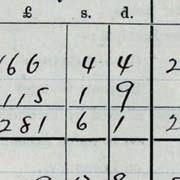 £ s. d.
166 4 4 2
115 1 9
281 6 1 2